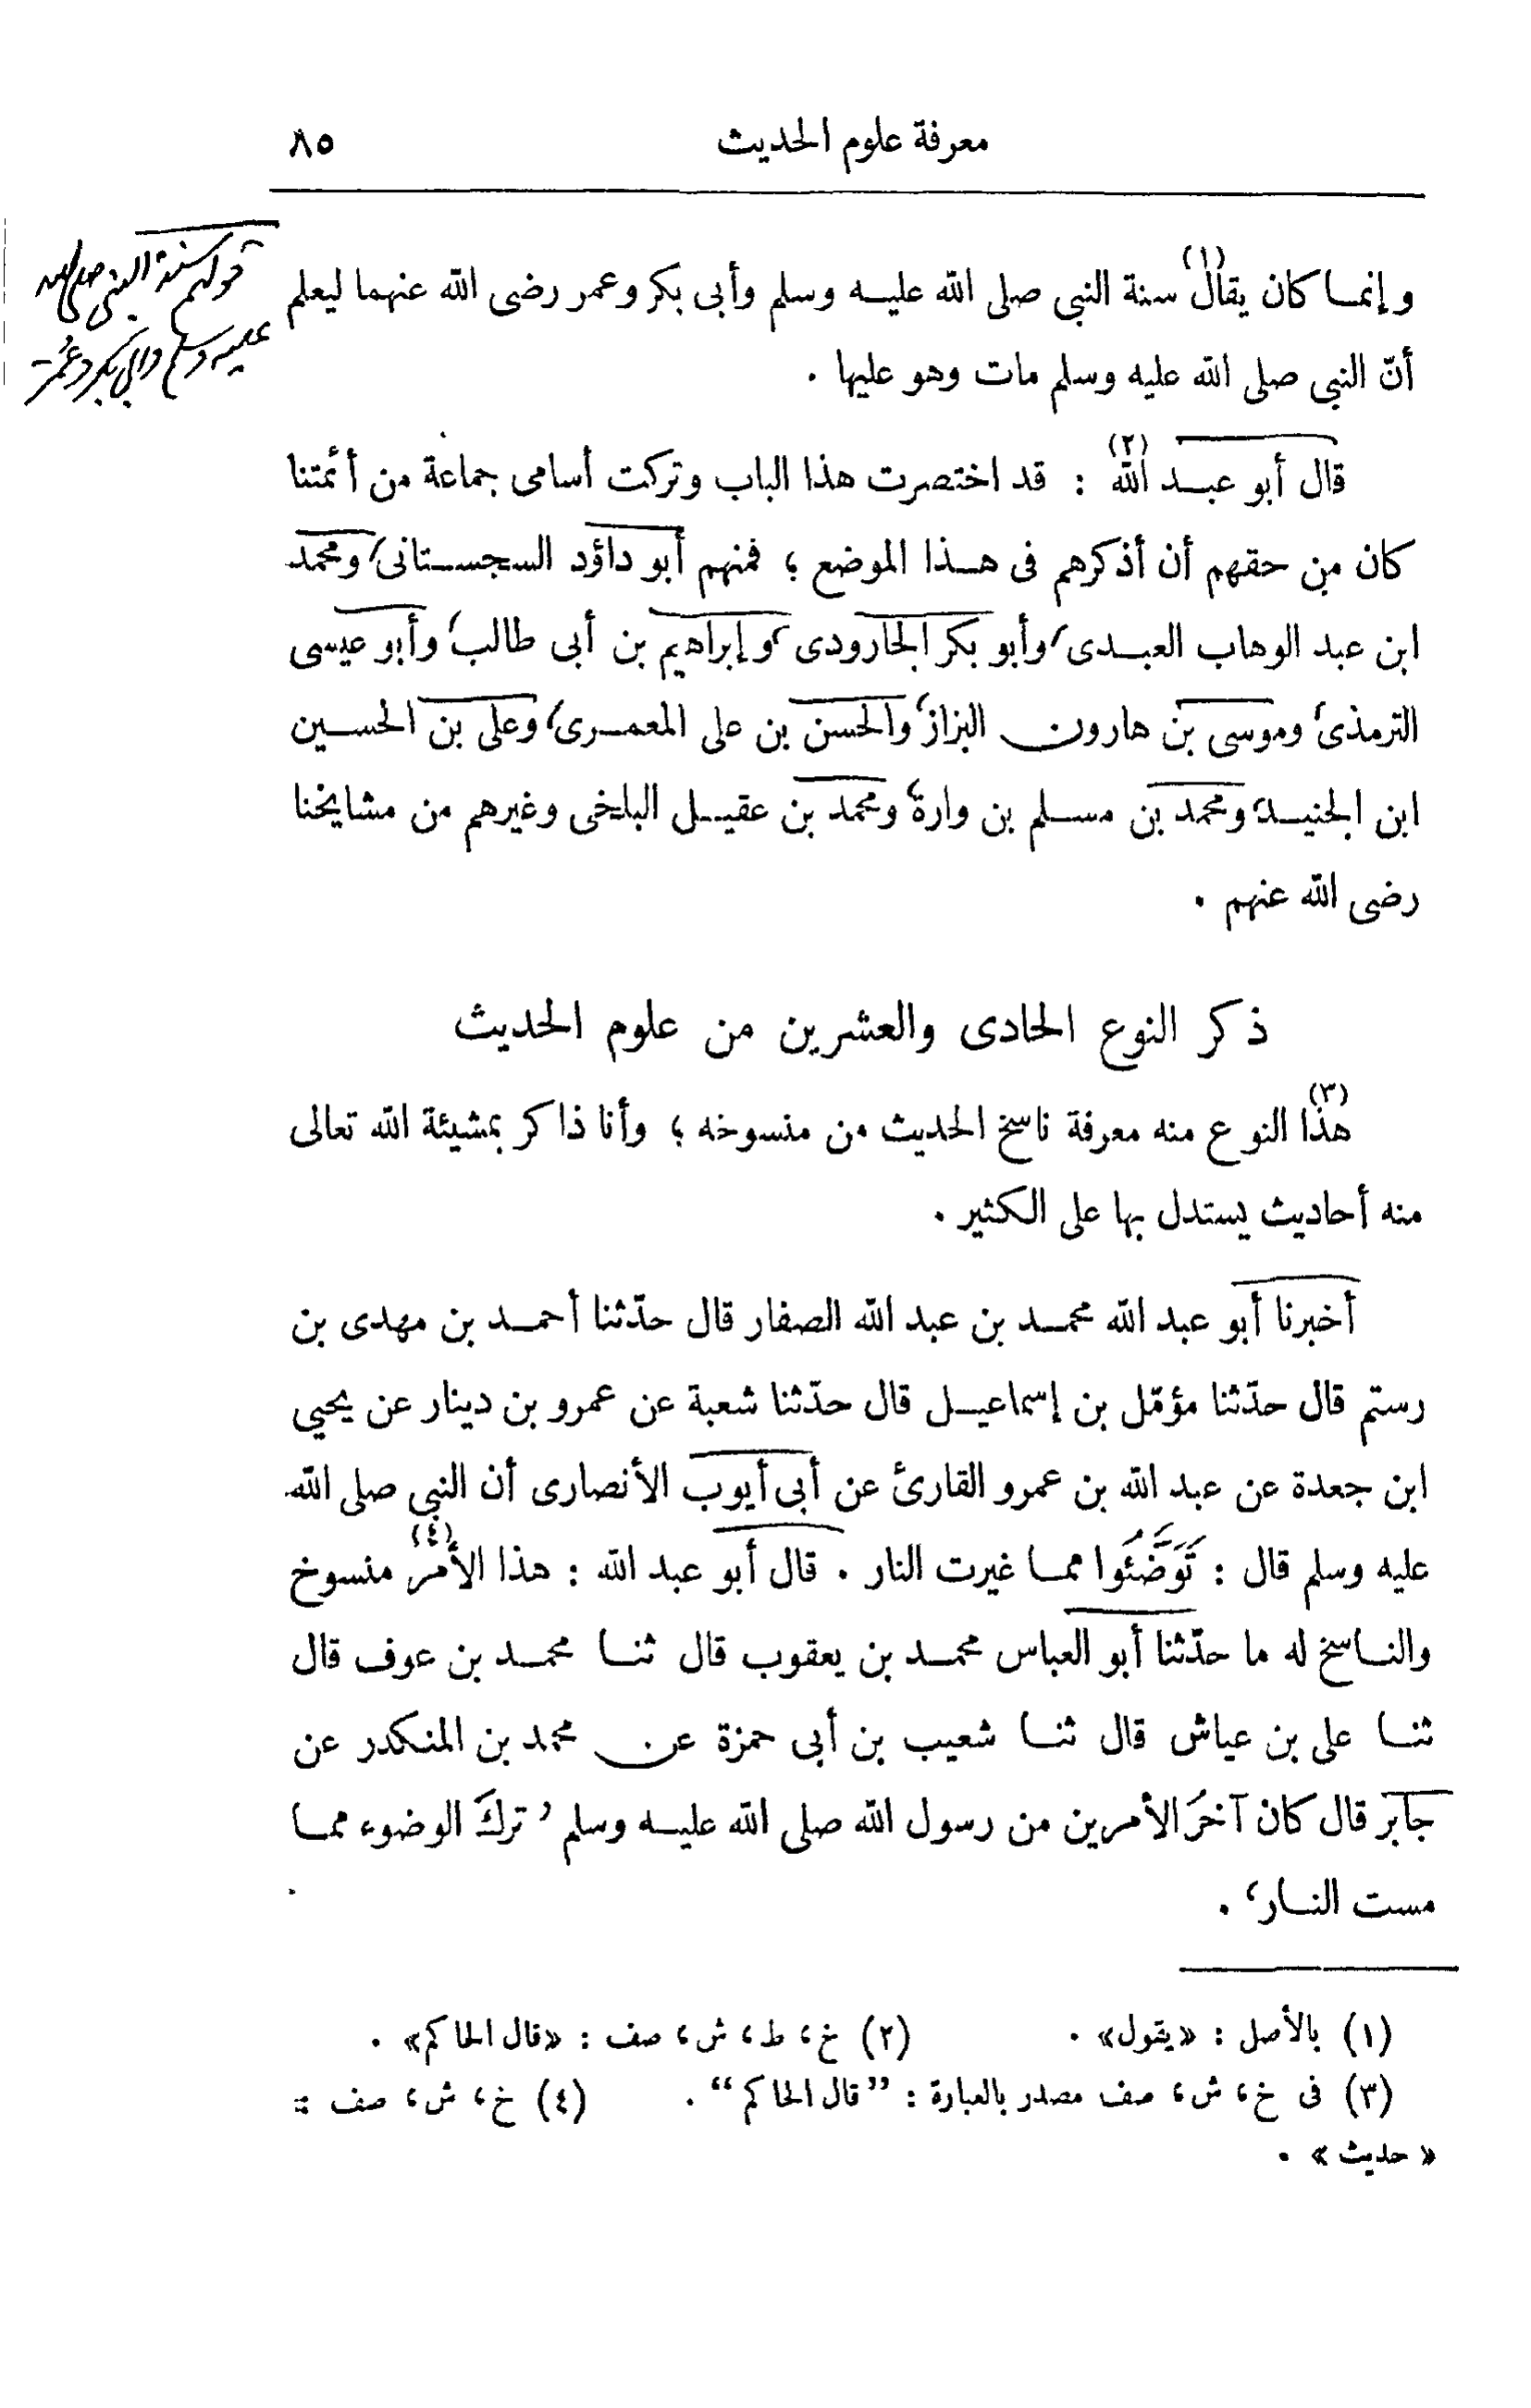 معرفة علوم الحديث ٨٥
وإنما كان يقال (١) سنة النبى صلى الله عليه وسلم وأبى بكر وعمر رضى الله عنهما ليعلم
أنّ النبى صلى الله عليه وسلم مات وهو عليها .
قولهم سنة النبى صلى الله
عليه وسلم وابى بكر وعمر
قال أبو عبد الله (٢) : قد اختصرت هذا الباب وتركت أسامى جماعة من أئمتنا
كان من حقهم أن أذكرهم فى هذا الموضع ؛ فمنهم أبو داؤد السجستانى، ومحمد
ابن عبد الوهاب العبدى، وأبو بكر الجارودى، وإبراهيم بن أبى طالب، وأبو عيسى
الترمذى، وموسى بن هارون البزاز، والحسن بن على المعمرى، وعلى بن الحسين
ابن الجنيد، ومحمد بن مسلم بن وارة، ومحمد بن عقيل البلخى وغيرهم من مشايخنا
رضى الله عنهم .
ذكر النوع الحادى والعشرين من علوم الحديث
هذا (٣) النوع منه معرفة ناسخ الحديث من منسوخه ؛ وأنا ذاكر بمشيئة الله تعالى
منه أحاديث يستدل بها على الكثير .
أخبرنا أبو عبد الله محمد بن عبد الله الصفار قال حدّثنا أحمد بن مهدى بن
رستم قال حدّثنا مؤمّل بن إسماعيل قال حدّثنا شعبة عن عمرو بن دينار عن يحيى
ابن جعدة عن عبد الله بن عمرو القارئ عن أبى أيوب الأنصارى أن النبى صلى الله
عليه وسلم قال : تَوَضَّئُوا مما غيرت النار . قال أبو عبد الله : هذا الأمر (٤) منسوخ
والناسخ له ما حدّثنا أبو العباس محمد بن يعقوب قال ثنا محمد بن عوف قال
ثنا على بن عياش قال ثنا شعيب بن أبى حمزة عن محمد بن المنكدر عن
جابر قال كان آخرَ الأمرين من رسول الله صلى الله عليه وسلم ’ تركَ الوضوء مما
مست النار‘ .
(١) بالأصل : «يقول» . (٢) خ، ط، ش، صف : «قال الحاكم» .
(٣) فى خ، ش، صف مصدر بالعبارة : ”قال الحاكم“ . (٤) خ، ش، صف :
«حديث» .